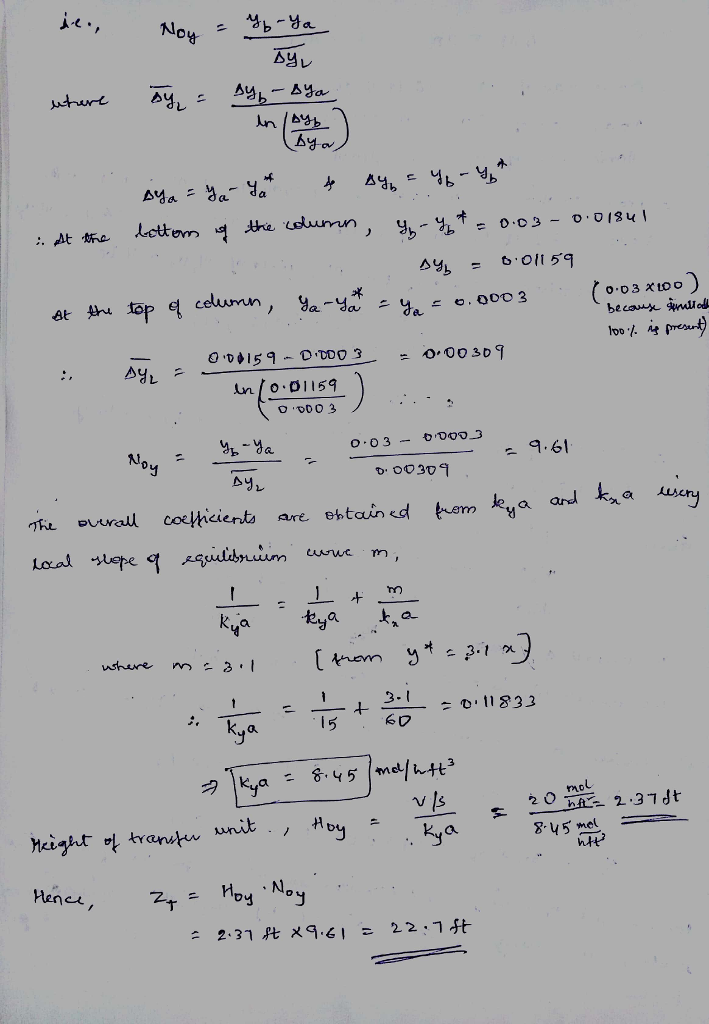 i.e., Noy = yb - ya / Δ̅y̅L
where Δ̅y̅L = Δyb - Δya / ln (Δyb / Δya)
Δya = ya - ya* & Δyb = yb - yb*
∴ At the bottom of the column, yb - yb* = 0.03 - 0.01841
Δyb = 0.01159
At the top of column, ya - ya* = ya = 0.0003 (0.03 x 100)
because
100% is present)
∴ Δ̅y̅L = 0.01159 - 0.0003 / ln (0.01159 / 0.0003) = 0.00309
Noy = yb - ya / Δ̅y̅L = 0.03 - 0.0003 / 0.00309 = 9.61
The overall coefficients are obtained from kya and kxa using
local slope of equilibrium curve m,
1/Kya = 1/kya + m/kxa
where m = 3.1 [from y* = 3.1 x]
∴ 1/Kya = 1/15 + 3.1/60 = 0.11833
⇒ Kya = 8.45 mol/hft³
Height of transfer unit., Hoy = V/S / Kya = 20 mol/hft² / 8.45 mol/hft³ = 2.37 ft
Hence, ZT = Hoy · Noy
= 2.37 ft x 9.61 = 22.7 ft